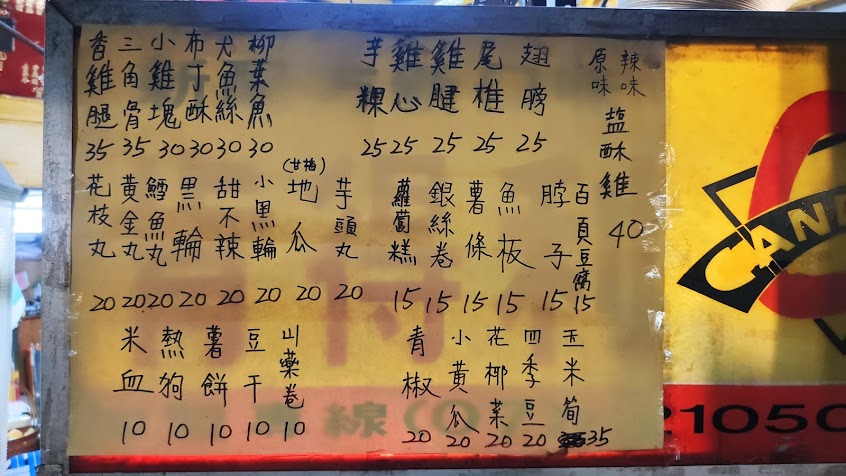 辣味
原味
塩酥雞 40
翅膀 25
尾椎 25
雞腱 25
雞心 25
芋粿 25
柳葉魚 30
尤魚絲 30
布丁酥 30
小雞塊 30
三角骨 35
香雞腿 35
百頁豆腐 15
脖子 15
魚板 15
薯條 15
銀絲卷 15
蘿蔔糕 15
芋頭丸 20
(甘梅)地瓜 20
小黑輪 20
甜不辣 20
黑輪 20
鱈魚丸 20
黃金丸 20
花枝丸 20
玉米筍 35
四季豆 20
花椰菜 20
小黃瓜 20
青椒 20
山藥卷 10
豆干 10
薯餅 10
熱狗 10
米血 10
CAN
線
21050